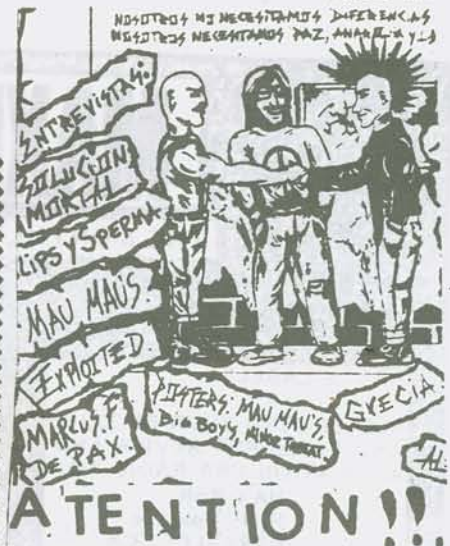 NOSOTROS NO NECESITAMOS DIFERENCIAS
NOSOTROS NECESITAMOS PAZ, ANARQUIA Y
ENTREVISTAS:
SOLUCION
MORTAL
LIPS Y SPERMA
MAU MAU'S.
EXPLOITED.
MARCUS. F
DE PAX.
POSTERS: MAU MAU'S.
BIG BOYS, MINOR THREAT.
GRECIA.
ATENTION!!